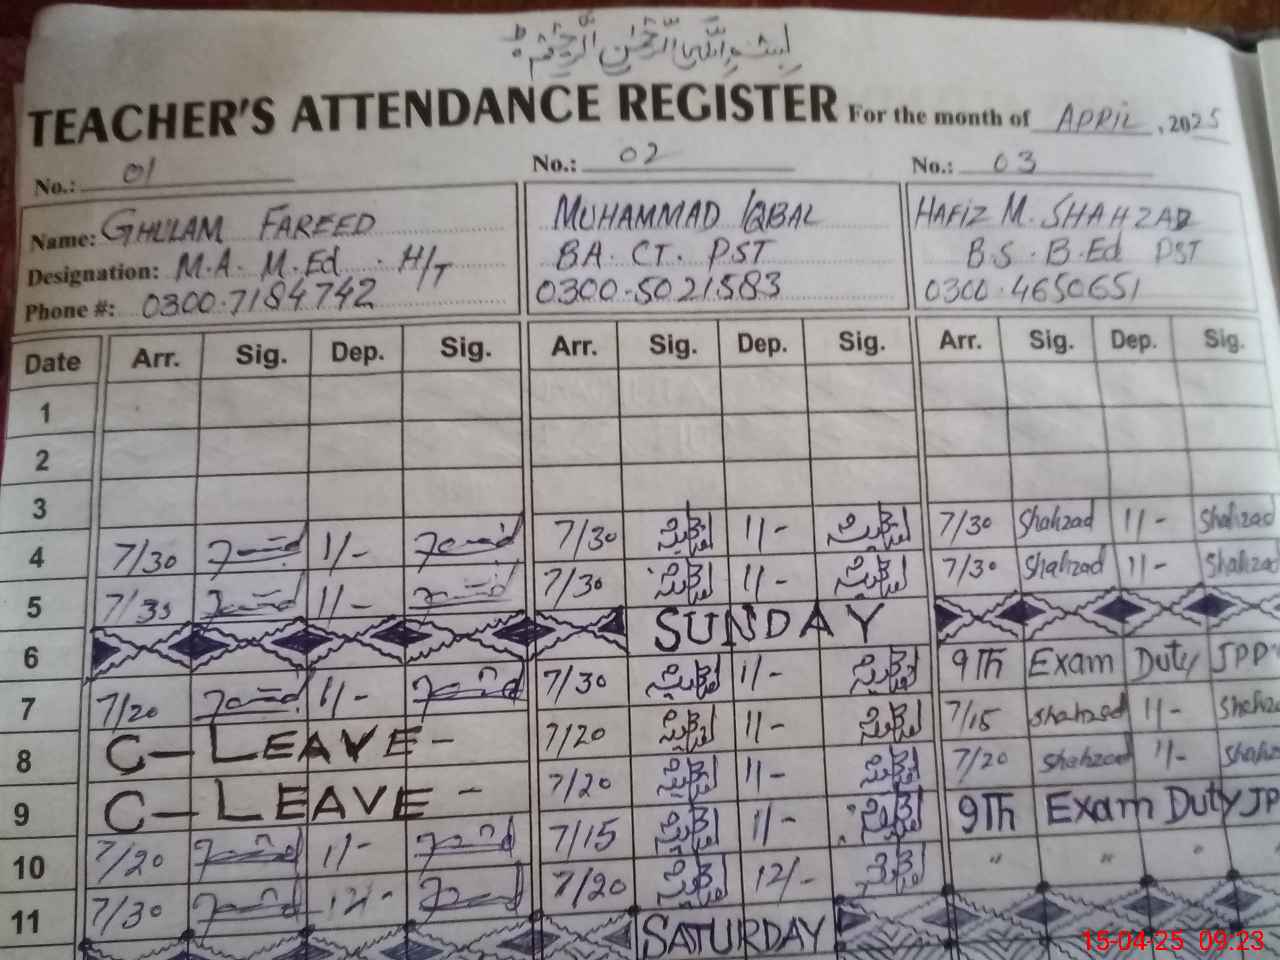 بِسْمِ اللّٰہِ الرَّحْمٰنِ الرَّحِیْمِ
TEACHER'S ATTENDANCE REGISTER For the month of APRIL, 2025
No.: 01 No.: 02 No.: 03
Name: GHULAM FAREED MUHAMMAD IQBAL HAFIZ M. SHAHZAD
Designation: M.A. M.Ed. H/T BA. CT. PST B.S. B.Ed PST
Phone #: 0300-7184742 0300-5021583 0300-4650651
Date Arr. Sig. Dep. Sig. Arr. Sig. Dep. Sig. Arr. Sig. Dep. Sig.
1
2
3
4 7/30 11/- 7/30 11/- 7/30 Shahzad 11/- Shahzad
5 7/30 11/- 7/30 11/- 7/30 Shahzad 11/- Shahzad
6 SUNDAY
7 7/20 11/- 7/30 11/- 9Th Exam Duty
8 C-LEAVE- 7/20 11/- 7/15 Shahzad 11/-
9 C-LEAVE- 7/20 11/- 7/20 Shahzad 11/-
10 7/20 11/- 7/15 11/- 9Th Exam Duty
11 7/30 12/- 7/20 12/- " " " "
SATURDAY
15-04-25 09:23